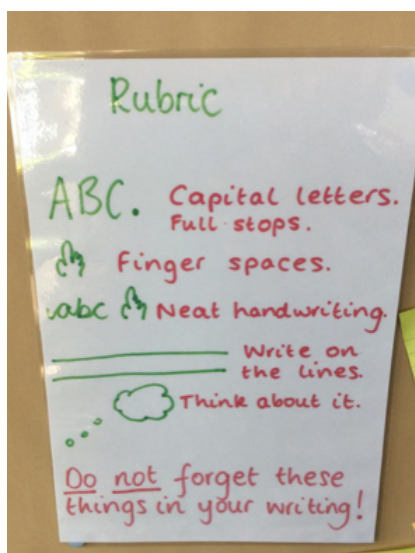 Rubric
ABC. Capital letters.
Full stops.
Finger spaces.
abc Neat handwriting.
Write on
the lines.
Think about it.
Do not forget these
things in your writing!